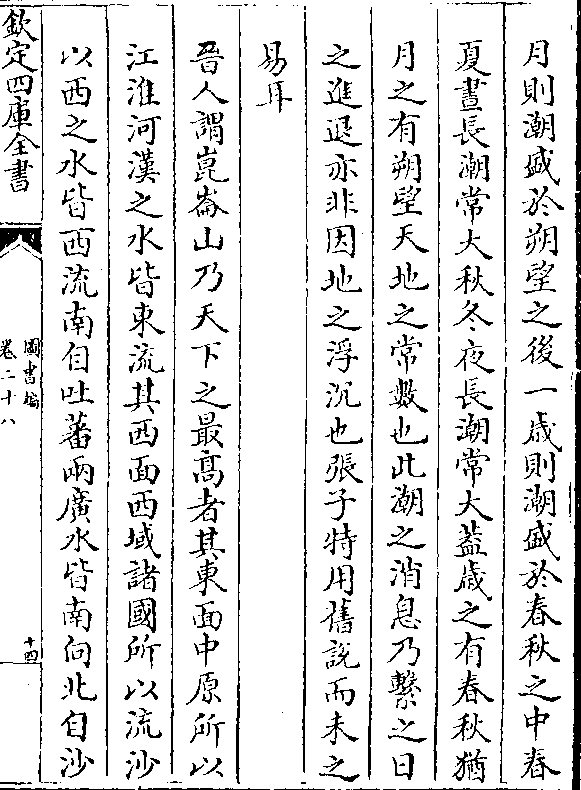 月則潮盛於朔望之後一歳則潮盛於春秋之中春
夏晝長潮常大秋冬夜長潮常大蓋歳之有春秋猶
月之有朔望天地之常數也此潮之消息乃繫之日
之進退亦非因地之浮沉也張子特用舊說而未之
易耳
晉人謂崑崙山乃天下之最髙者其東面中原所以
江淮河漢之水皆東流其西面西域諸國所以流沙
以西之水皆西流南自吐蕃兩廣水皆南向北自沙
欽定四庫全書
圖書編
卷二十八
十四